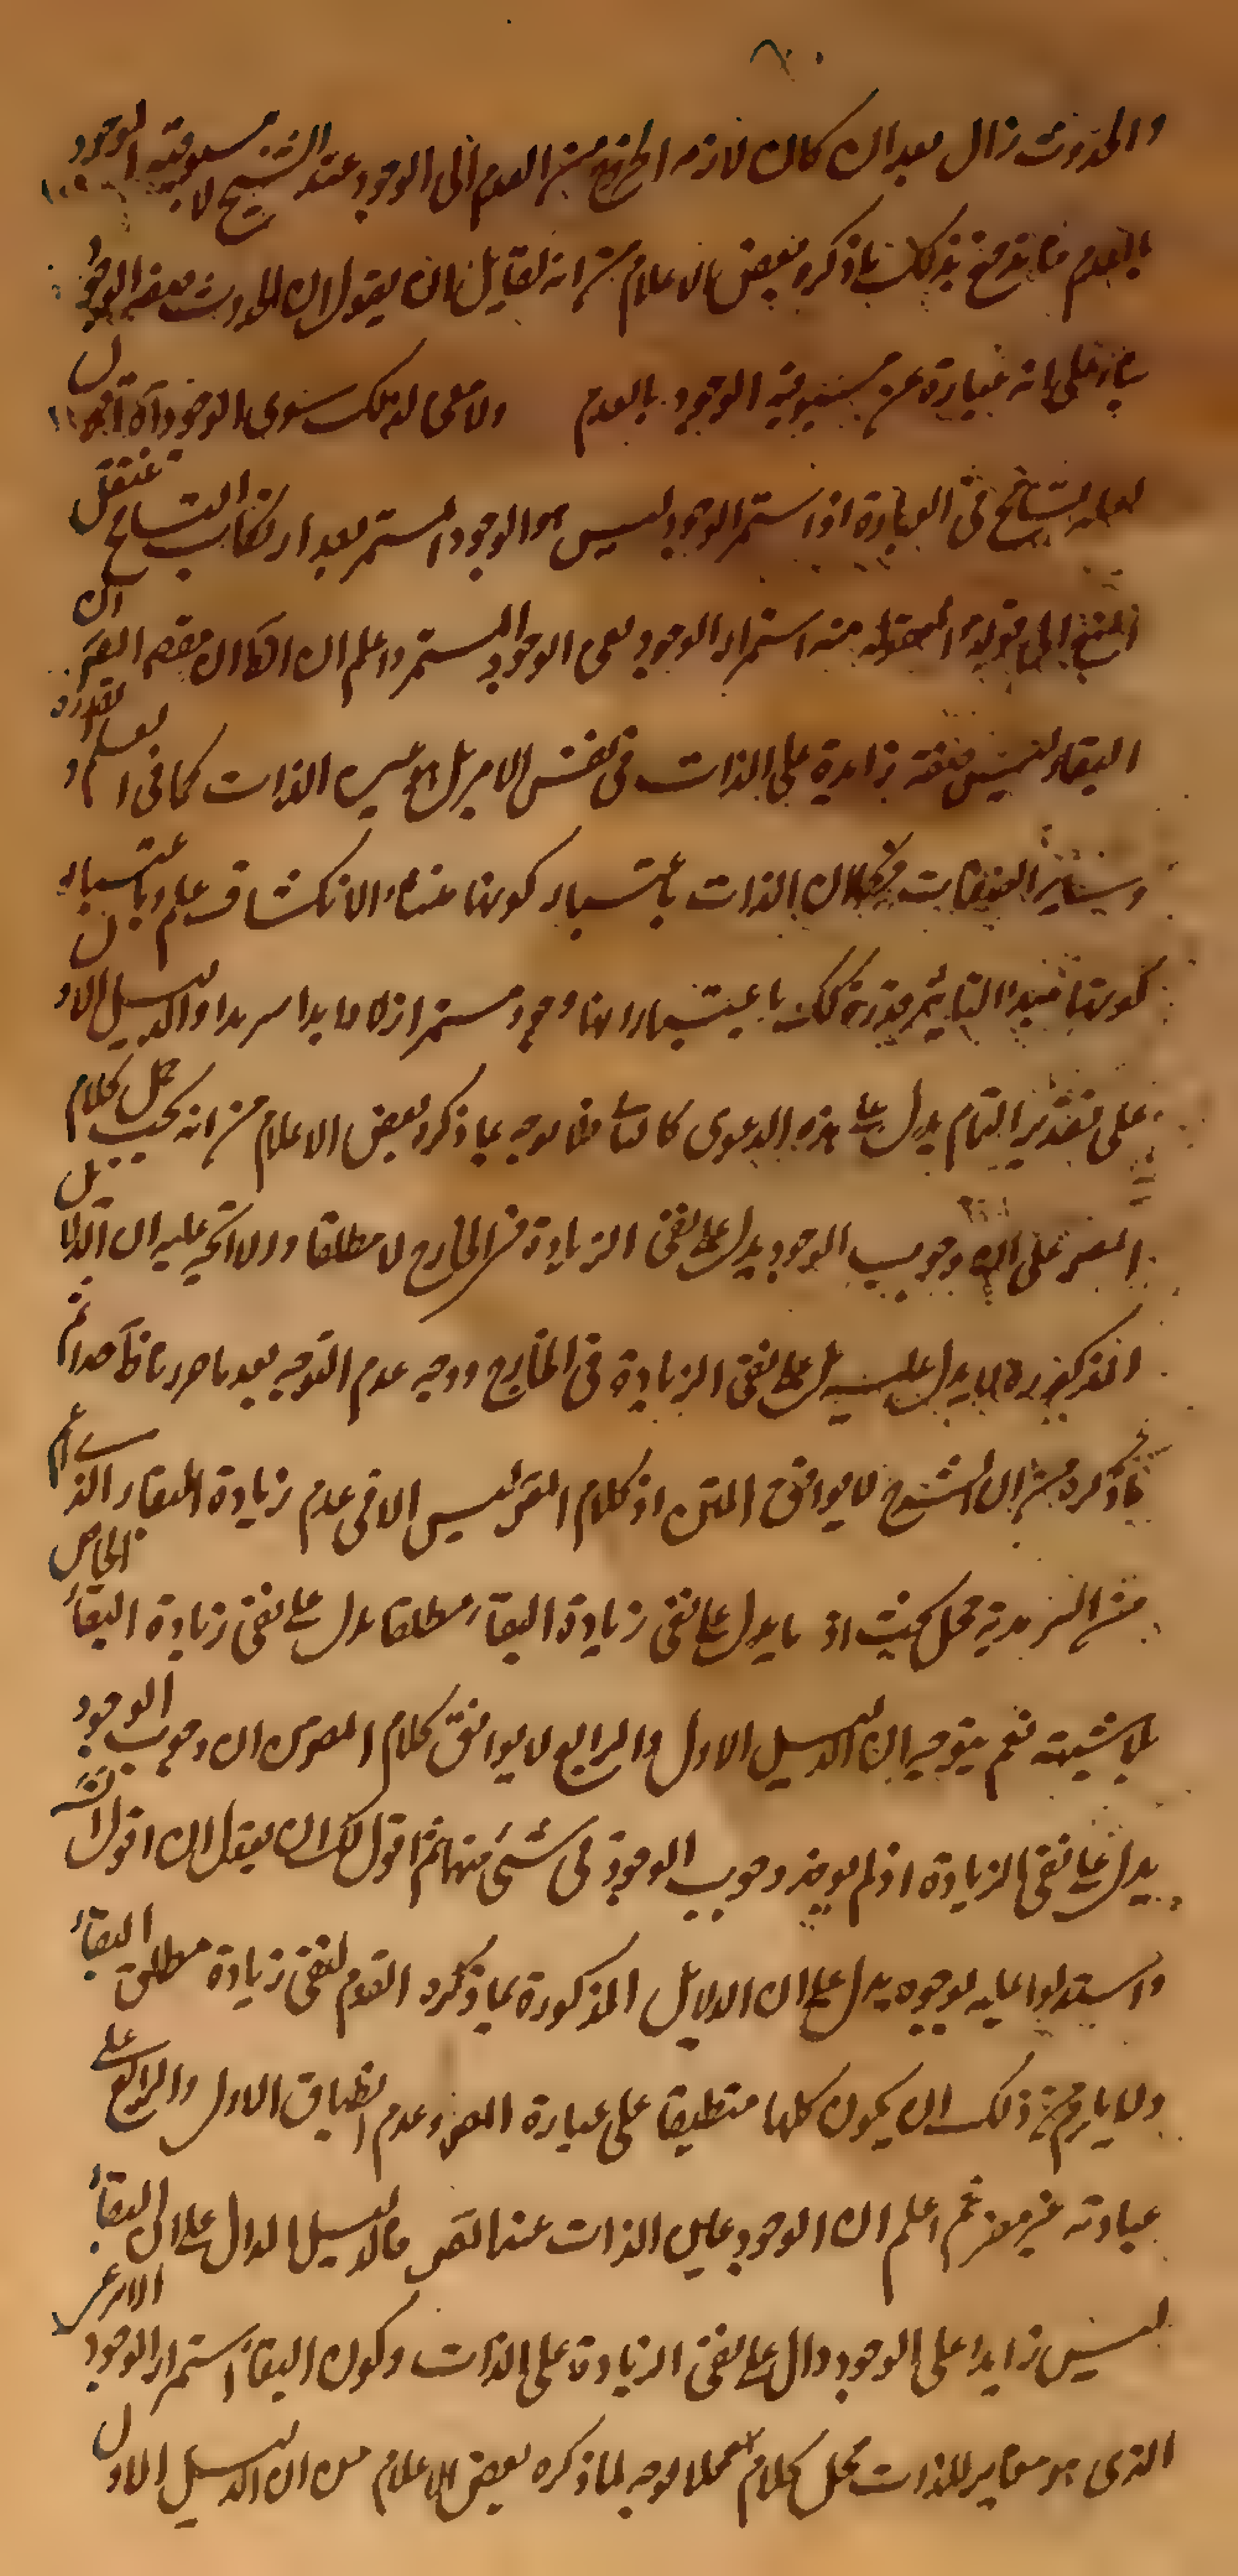 والحدوث زال بعد ان كان لازمه الخروج من العدم الى الوجود عند الشيخ لا مسبوقية الوجود
بالعدم فاندفع بذلك ما ذكره بعض الاعلام من انه لقايل ان يقول ان الحدوث الوجود
بناء على انه عبارة عن مسبوقية الوجود بالعدم ولا معنى لذلك سوى الوجود
لعله تسامح فى العبارة اذ استمرار الوجود ليس هو الوجود المستمر بعد ارتكاب التسامح
الى قوله المعقول منه استمرار الوجود يعنى الوجود المستمر واعلم ان ان كان مقصود المصر ان
البقاء ليس صفة زايدة على الذات فى نفس الامر بل هو عين الذات كما فى العلم والقدرة
وساير الصفات فكما ان الذات باعتبار كونها منشاء الانكشاف علم وباعتبار
كونها مبدا التاثير قدرة كذلك باعتبار انها وجود مستمر ازلا وابدا سرمدا والدليل الاول
على تقدير التمام يدل على هذه الدعوى كالثانى فلا يوجه ما ذكره بعض الاعلام من انه يجب حمل كلام
المصر على ان وجوب الوجود يدل على نفى الزيادة فى الخارج لا مطلقا والا اتجه عليه ان الدلايل
المذكورة لا يدل على نفى الزيادة فى الخارج ووجه عدم التوجيه بعد ما حررنا ظاهر ثم
ما ذكره من ان الشرح لا يوافق المتن اذ كلام المصر ليس الا فى عدم زيادة البقاء الذى اعم
من السرمدية محل بحث اذ ما يدل على نفى زيادة البقاء مطلقا يدل على نفى زيادة البقاء الخاص
بلا شبهة نعم يتوجه ان الدليل الاول والرابع لا يوافق كلام المصر من ان وجوب الوجود
يدل على نفى الزيادة اذ لم يوخذ وجوب الوجود فى شئ منهما ثم اقول لك ان يقول ان قول الش
واستدلوا عليه بوجوه يدل على ان الدلايل المذكورة مما ذكره القوم لنفى زيادة مطلق البقاء
ولا يلزم من ذلك ان يكون كلها منطبقا على عبارة المصر وعدم انطباق الاول والرابع على
عبارته غير مضر ثم اعلم ان الوجود عين الذات عند المصر فالدليل الدال على ان البقاء
ليس زايدا على الوجود دال على نفى الزيادة على الذات وكون البقاء استمرار الوجود
الذى هو مغاير للذات محل كلام فلا يوجه لما ذكره بعض الاعلام من ان الدليل الاول